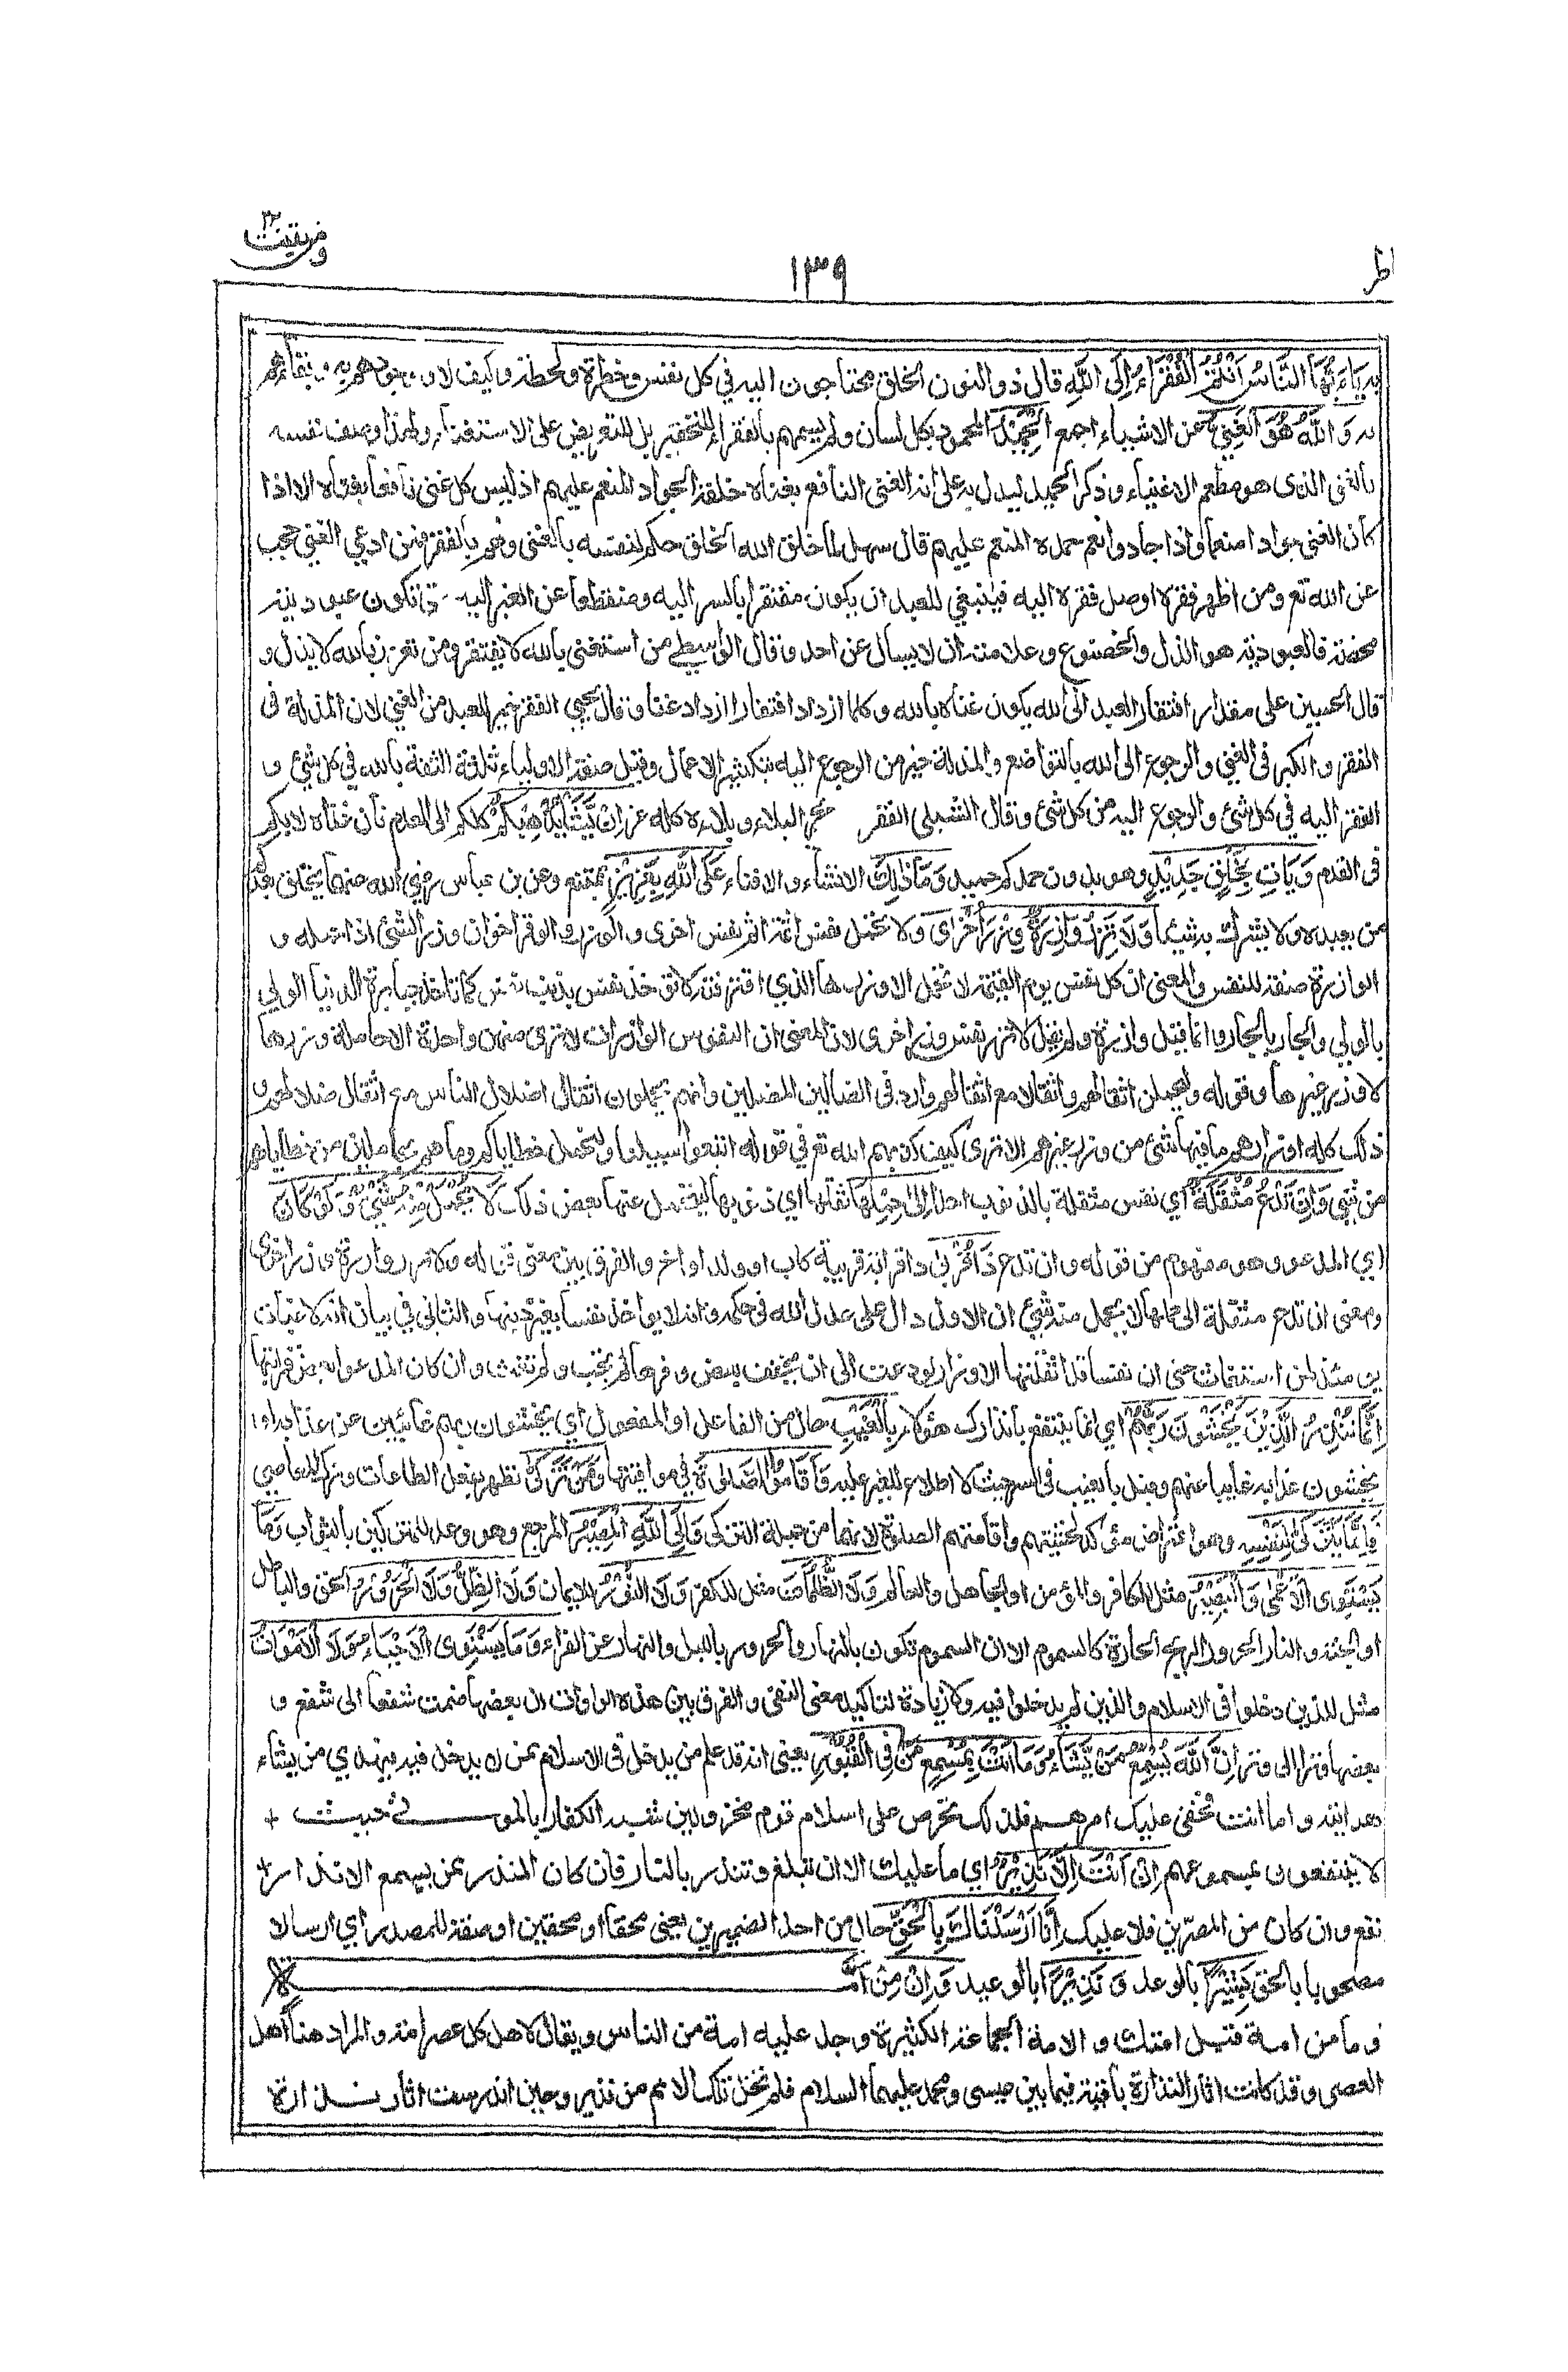 ومن يقنت ٢٢
١٣٩
يٰاَيُّهَا النَّاسُ اَنْتُمُ الْفُقَرَاءُ اِلَى اللّٰهِ قال ذو النون الخلق محتاجون اليه في كل نفس وخطرة ولحظة وكيف لا ووجودهم به وبقاؤهم
به وَاللّٰهُ هُوَ الْغَنِيُّ عن الاشياء اجمع الْحَمِيْدُ المحمود بكل لسان ولم يسمهم بالفقراء للتحقير بل للتعريض على الاستغناء ولهذا وصف نفسه
بالغني الذي هو مطعم الاغنياء وذكر الحميد ليدل به على انه الغني النافع بغناه خلقه الجواد المنعم عليهم اذ ليس كل غني نافعا بغناه الا اذا
كان الغني جوادا منعما واذا جاد وانعم حمده المنعم عليهم قال سهل لما خلق الله الخلق حكم لنفسه بالغنى ولهم بالفقر فمن ادعي الغني حجب
عن الله تع ومن اظهر فقره اوصل فقره اليه فينبغي للعبد ان يكون مفتقرا بالسر اليه ومنقطعا عن الغير اليه حتى تكون عبوديته
محضة فالعبودية هو الذل والخضوع وعلامته ان لا يسال عن احد وقال الواسطي من استغنى بالله لا يفتقر ومن تعزز بالله لا يذل و
قال الحسين على مقدار افتقار العبد الى الله يكون غناه بالله وكلما ازداد افتقارا ازداد غنا وقال يحيى الفقر خير للعبد من الغني لان المذلة في
الفقر والكبر في الغنى والرجوع الى الله بالتواضع والمذلة خير من الرجوع اليه بتكثير الاعمال وقيل صفة الاولياء ثلاثة الثقة بالله في كل شئ و
الفقر اليه في كل شئ والرجوع اليه من كل شئ وقال الشبلي الفقر يجر البلاء وبلاءه كله عز اِنْ يَّشَأْ يُذْهِبْكُمْ كلكم الى العدم فان غناه لا بكم
في القدم وَيَاْتِ بِخَلْقٍ جَدِيْدٍ وهو بدون حمدكم حميد وَمَا ذٰلِكَ الانشاء والافناء عَلَى اللّٰهِ بِعَزِيْزٍ بممتنع وعن بن عباس رضي الله عنهما يخلق بعدكم
من يعبده ولا يشرك به شيئا وَلَا تَزِرُ وَازِرَةٌ وِّزْرَ اُخْرٰى ولا تحمل نفس اثمة اثم نفس اخرى والوزر والوقر اخوان وزر الشئ اذا حمله و
الوازرة صفة للنفس والمعنى ان كل نفس يوم القيمة لا تحمل الا وزرها الذي اقترفته لا تؤخذ نفس بذنب نفس كما تاخذ جبابرة الدنيا الولي
بالولي والجار بالجار وانما قيل وازرة ولم يقل لا تزر نفس وزر اخرى لان المعنى ان النفوس الوازرات لا ترى منهن واحدة الا حاملة وزرها
لا وزر غيرها وقوله وليحملن اثقالهم واثقالا مع اثقالهم وارد في الضالين المضلين وانهم يحملون اثقال اضلال الناس مع اثقال ضلالهم و
ذلك كله اوزارهم ما فيها شئ من وزر غيرهم الا ترى كيف كذبهم الله تع في قوله اتبعوا سبيلنا ولنحمل خطاياكم وما هم بحاملين من خطاياهم
من شئ وَاِنْ تَدْعُ مُثْقَلَةٌ اي نفس مثقلة بالذنوب احدا اِلٰى حِمْلِهَا ثقلها اي ذنوبها ليتحمل عنها بعض ذلك لَا يُحْمَلْ مِنْهُ شَيْءٌ وَّلَوْ كَانَ
اي المدعو وهو مفهوم من قوله وان تدع ذَا قُرْبٰى ذا قرابة قريبة كاب او ولد او اخ والفرق بين معنى قوله ولا تزر وازرة وزر اخرى
ومعنى ان تدع مثقلة الى حملها لا يحمل منه شئ ان الاول دال على عدل الله في حكمه وانه لا يواخذ نفسا بغير ذنبها والثاني في بيان انه لا غياث
يومئذ لمن استغاث حتى ان نفسا قد اثقلتها الاوزار لو دعت الى ان يخفف بعض وقرها لم تجب ولم تغث وان كان المدعو بعض قرابتها
اِنَّمَا تُنْذِرُ الَّذِيْنَ يَخْشَوْنَ رَبَّهُمْ اي انما ينتفع بانذارك هؤلاء بِالْغَيْبِ حال من الفاعل او المفعول اي يخشون ربهم غائبين عن عذابه او
يخشون عذابه غايبا عنهم وقيل بالغيب في السر حيث لا اطلاع للغير عليه وَاَقَامُوا الصَّلٰوةَ في مواقيتها وَمَنْ تَزَكّٰى تطهر بفعل الطاعات وترك المعاصي
فَاِنَّمَا يَتَزَكّٰى لِنَفْسِهٖ وهو اعتراض مؤكد لخشيتهم واقامتهم الصلوة لانهما من جملة التزكى وَاِلَى اللّٰهِ الْمَصِيْرُ المرجع وهو وعد للمتزكين بالثواب وَمَا
يَسْتَوِى الْاَعْمٰى وَالْبَصِيْرُ مثل للكافر والمؤمن او الجاهل والعالم وَلَا الظُّلُمٰتُ مثل للكفر وَلَا النُّوْرُ للايمان وَلَا الظِّلُّ وَلَا الْحَرُوْرُ الحق والباطل
او الجنة والنار الحرور الريح الحارة كالسموم الا ان السموم تكون بالنهار والحرور بالليل والنهار عن الفراء وَمَا يَسْتَوِى الْاَحْيَاءُ وَلَا الْاَمْوَاتُ
مثل للذين دخلوا في الاسلام والذين لم يدخلوا فيه ولا زيادة لتاكيد معنى النفي والفرق بين هذه الواوات ان بعضها ضمت شفعا الى شفع و
بعضها وترا الى وتر اِنَّ اللّٰهَ يُسْمِعُ مَنْ يَّشَاءُ وَمَا اَنْتَ بِمُسْمِعٍ مَّنْ فِى الْقُبُوْرِ يعني انه قد علم من يدخل في الاسلام ممن لا يدخل فيه فيهدي من يشاء
هدايته واما انت فخفي عليك امرهم فلذلك تحرص على اسلام قوم مخذولين شبه الكفار بالموتى حيث
لا ينتفعون بمسموعهم اِنْ اَنْتَ اِلَّا نَذِيْرٌ اي ما عليك الا ان تبلغ وتنذر بالنار فان كان المنذر ممن يسمع الانذار
نفع وان كان من المصرين فلا عليك اِنَّا اَرْسَلْنَاكَ بِالْحَقِّ حال من احد الضميرين يعنى محقا او محقين او صفة للمصدر اي ارسالا
مصحوبا بالحق بَشِيْرًا بالوعد وَّنَذِيْرًا بالوعيد وَاِنْ مِّنْ اُمَّةٍ
وما من امة قبل امتك والامة الجماعة الكثيرة وجد عليه امة من الناس ويقال لاهل كل عصر امة والمراد هنا اهل
العصر وقد كانت اثار النذارة باقية فيما بين عيسى ومحمد عليهما السلام فلم تخل تلك الامم من نذير وحين اندرست اثار نذارة